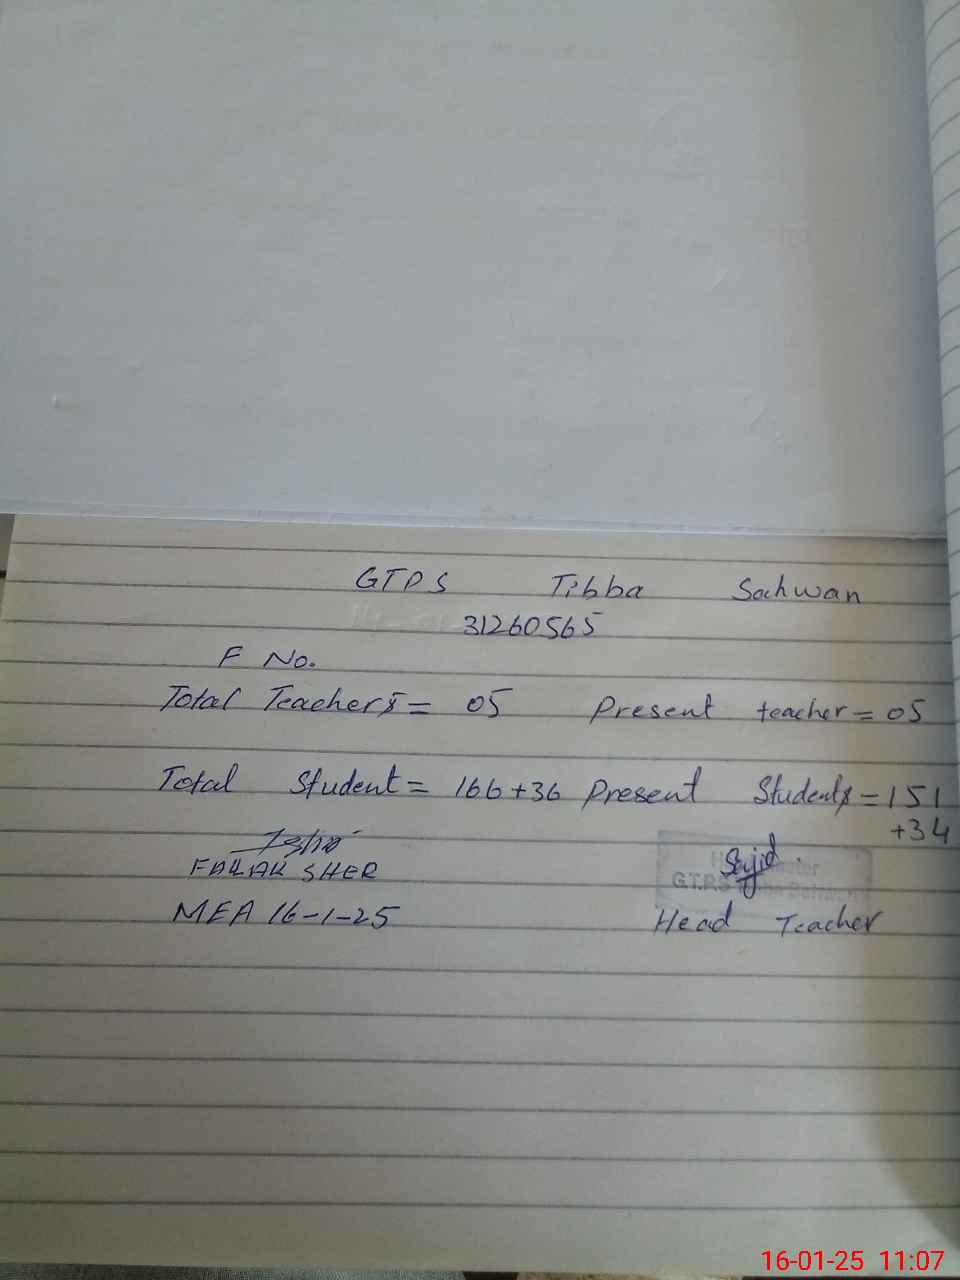 GTPS Tibba Sahwan
31260565
F No.
Total Teachers = 05 Present teacher = 05
Total Student = 166+36 Present Students = 151
+34
FALAK SHER
Sajid
G.T.P.S
MEA 16-1-25
Head Teacher
16-01-25 11:07